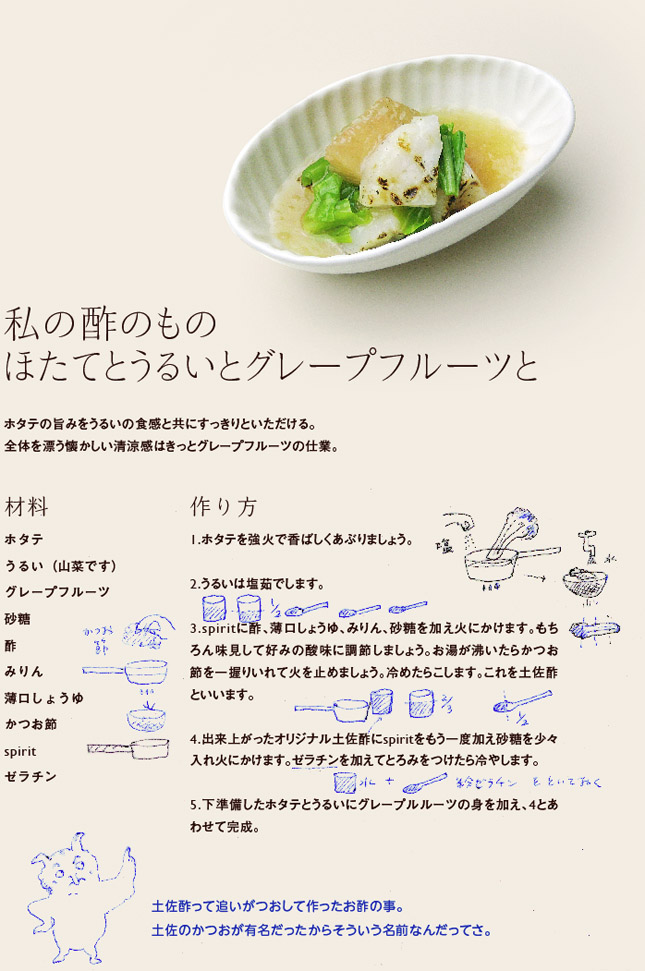 私の酢のもの
ほたてとうるいとグレープフルーツと
ホタテの旨みをうるいの食感と共にすっきりといただける。
全体を漂う懐かしい清涼感はきっとグレープフルーツの仕業。
材料
ホタテ
うるい（山菜です）
グレープフルーツ
砂糖
酢
みりん
薄口しょうゆ
かつお節
spirit
ゼラチン
かつお
節
作り方
1.ホタテを強火で香ばしくあぶりましょう。
塩
水
2.うるいは塩茹でします。
1/2
3.spiritに酢、薄口しょうゆ、みりん、砂糖を加え火にかけます。もち
ろん味見して好みの酸味に調節しましょう。お湯が沸いたらかつお
節を一握りいれて火を止めましょう。冷めたらこします。これを土佐酢
といいます。
2/3
1/2
4.出来上がったオリジナル土佐酢にspiritをもう一度加え砂糖を少々
入れ火にかけます。ゼラチンを加えてとろみをつけたら冷やします。
水 + 粉ゼラチン をといておく
5.下準備したホタテとうるいにグレープルルーツの身を加え、4とあ
わせて完成。
土佐酢って追いがつおして作ったお酢の事。
土佐のかつおが有名だったからそういう名前なんだってさ。